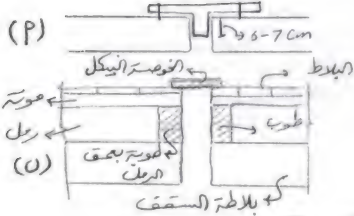 (P)
6-7 cm
الخوصة النيكل
البلاط
مونة
رمل
طوب
(U)
طوبة بعمق
الرمل
بلاطة السقف